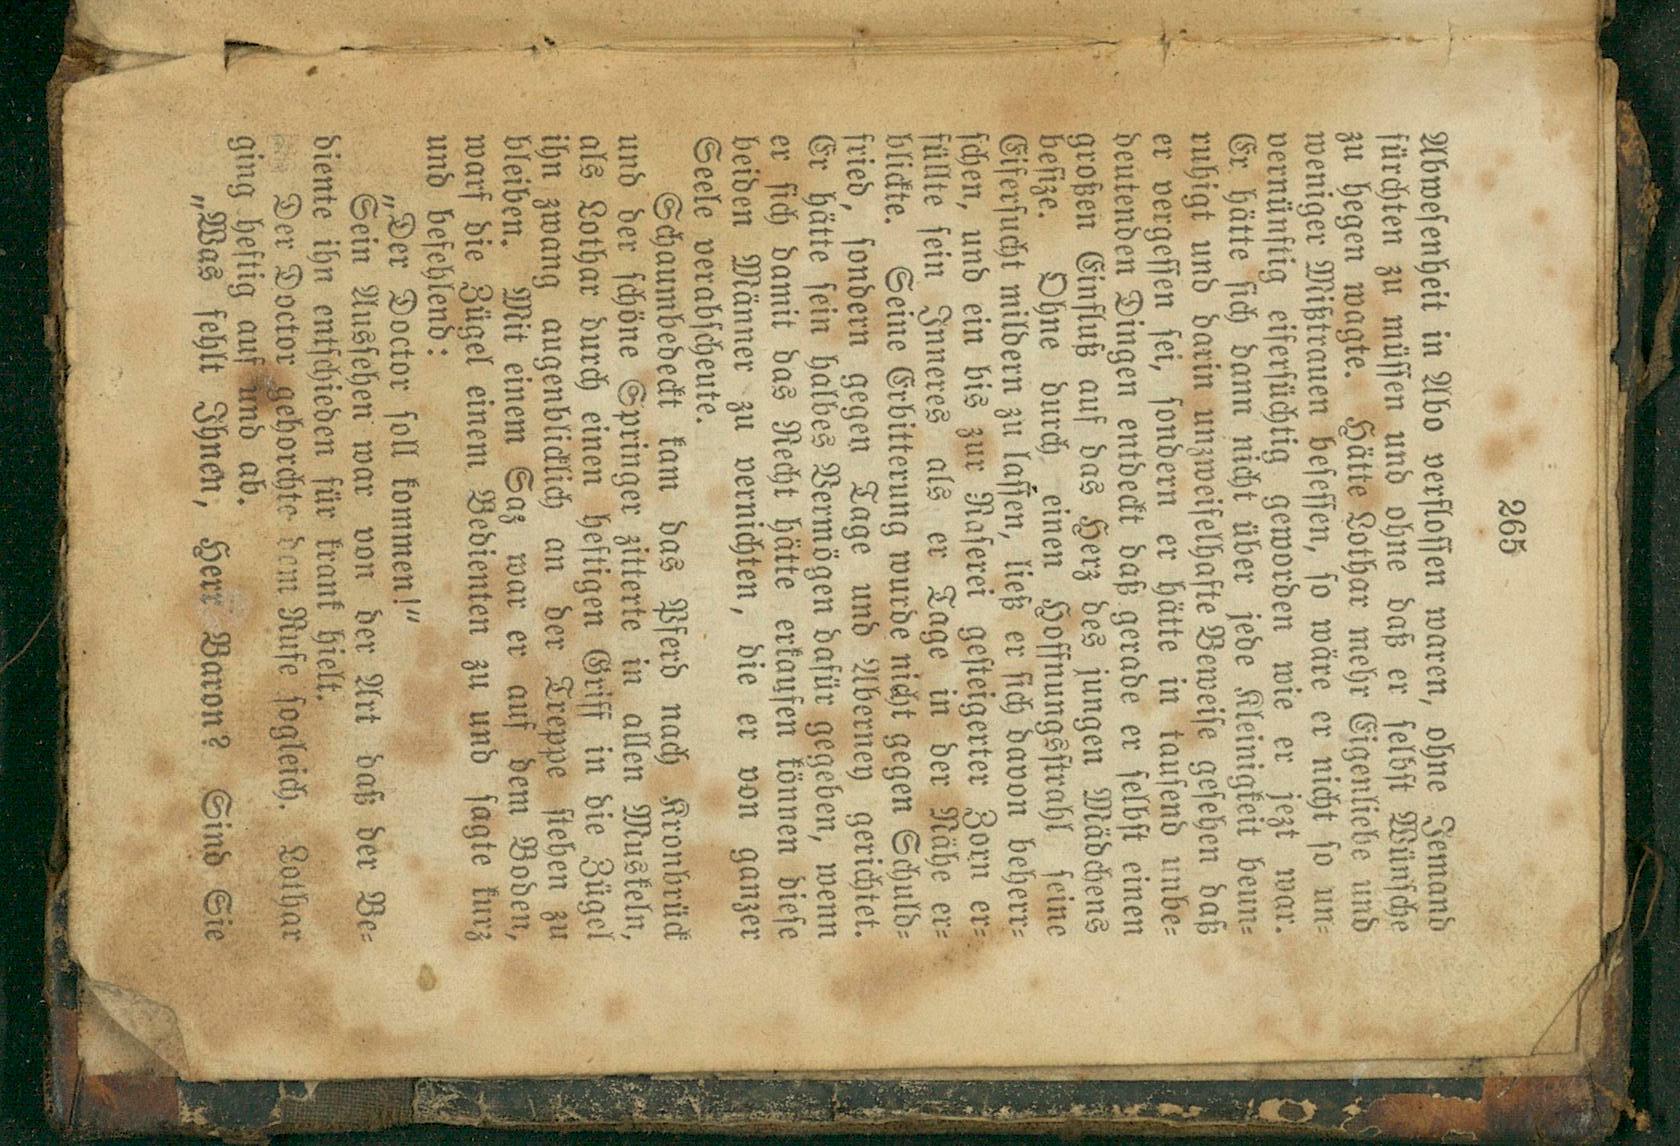 265
Abwesenheit in Abo verflossen waren, ohne Jemand
fürchten zu müssen und ohne daß er selbst Wünsche
zu hegen wagte. Hätte Lothar mehr Eigenliebe und
weniger Mißtrauen besessen, so wäre er nicht so un-
vernünftig eifersüchtig geworden wie er jezt war.
Er hätte sich dann nicht über jede Kleinigkeit beun-
ruhigt und darin unzweifelhafte Beweise gesehen daß
er vergessen sei, sondern er hätte in tausend unbe-
deutenden Dingen entdeckt daß gerade er selbst einen
großen Einfluß auf das Herz des jungen Mädchens
besize. Ohne durch einen Hoffnungsstrahl seine
Eifersucht mildern zu lassen, ließ er sich davon beherr-
schen, und ein bis zur Raserei gesteigerter Zorn er-
füllte sein Inneres als er Tage in der Nähe er-
blickte. Seine Erbitterung wurde nicht gegen Schuld-
fried, sondern gegen Tage und Aberney gerichtet.
Er hätte sein halbes Vermögen dafür gegeben, wenn
er sich damit das Recht hätte erkaufen können diese
beiden Männer zu vernichten, die er von ganzer
Seele verabscheute.
Schaumbedeckt kam das Pferd nach Kronbrück
und der schöne Springer zitterte in allen Muskeln,
als Lothar durch einen heftigen Griff in die Zügel
ihn zwang augenblicklich an der Treppe stehen zu
bleiben. Mit einem Saz war er auf dem Boden,
warf die Zügel einem Bedienten zu und sagte kurz
und befehlend:
„Der Doctor soll kommen!“
Sein Aussehen war von der Art daß der Be-
diente ihn entschieden für krank hielt.
Der Doctor gehorchte dem Rufe sogleich. Lothar
ging heftig auf und ab.
„Was fehlt Ihnen, Herr Baron? Sind Sie